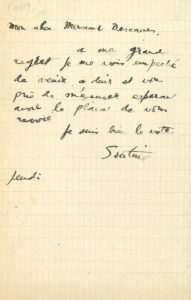 Mon cher Monsieur Descaves,
a mon grand
regret je me vois empeché
de venir a diner et vous
prie de m'excuser esperant
avoir le plaisir de vous
revoir
je suis bien le votre
Soutine
Jeudi